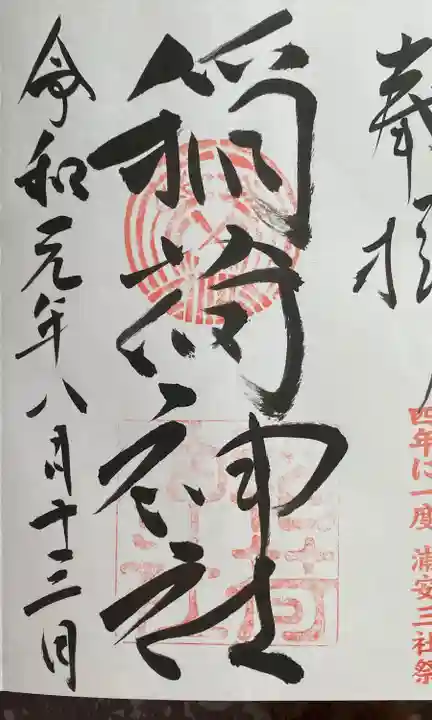 奉拝
四年に一度 浦安三社祭
稲荷神社
令和元年八月十三日